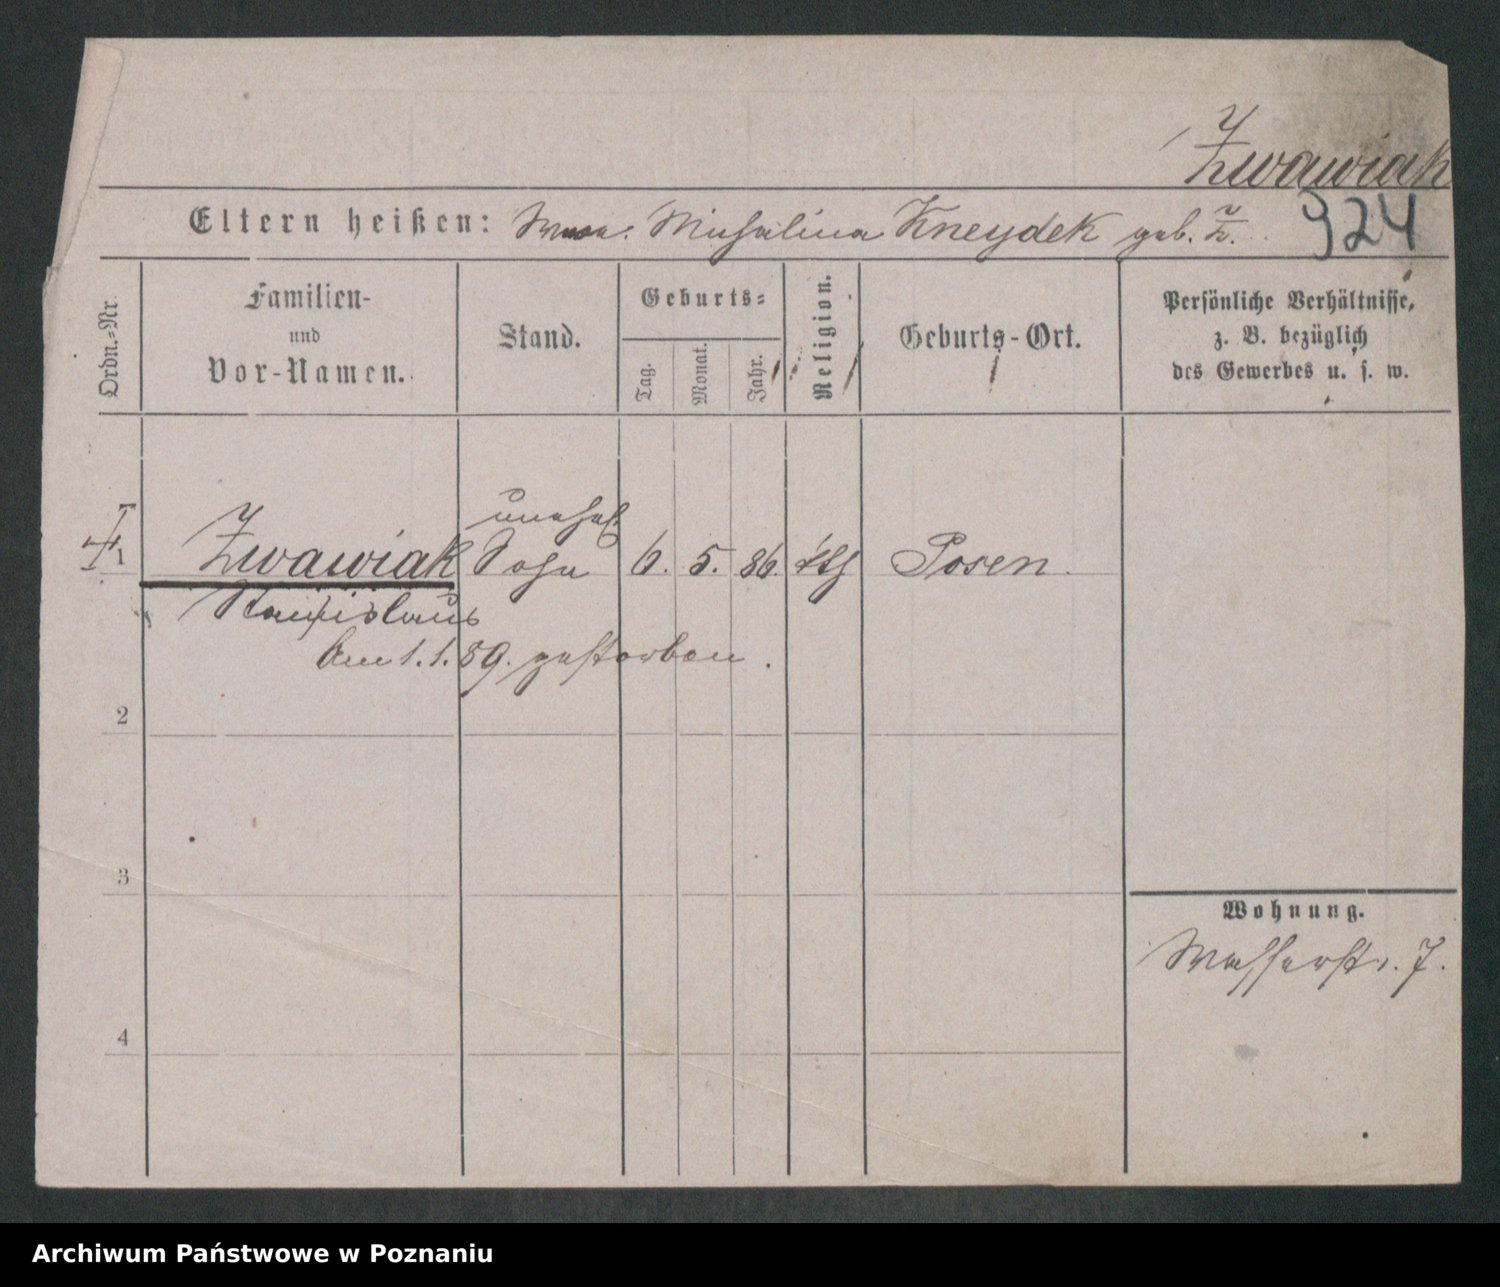 Zwawiak
Eltern heißen: Michalina Kneydek geb. Z.
924
Ordn.-Nr.
Familien-
und
Vor-Namen.
Stand.
Geburts-
Tag.
Monat.
Jahr.
Religion.
Geburts-Ort.
Persönliche Verhältnisse,
z. B. bezüglich
des Gewerbes u. s. w.
1
Zwawiak
unehel.
Sohn
6. 5. 86. kth Posen.
Stanislaus
Am 1. 1. 89. gestorben.
2
3
Wohnung.
Wasserstr. 7.
4
Archiwum Państwowe w Poznaniu